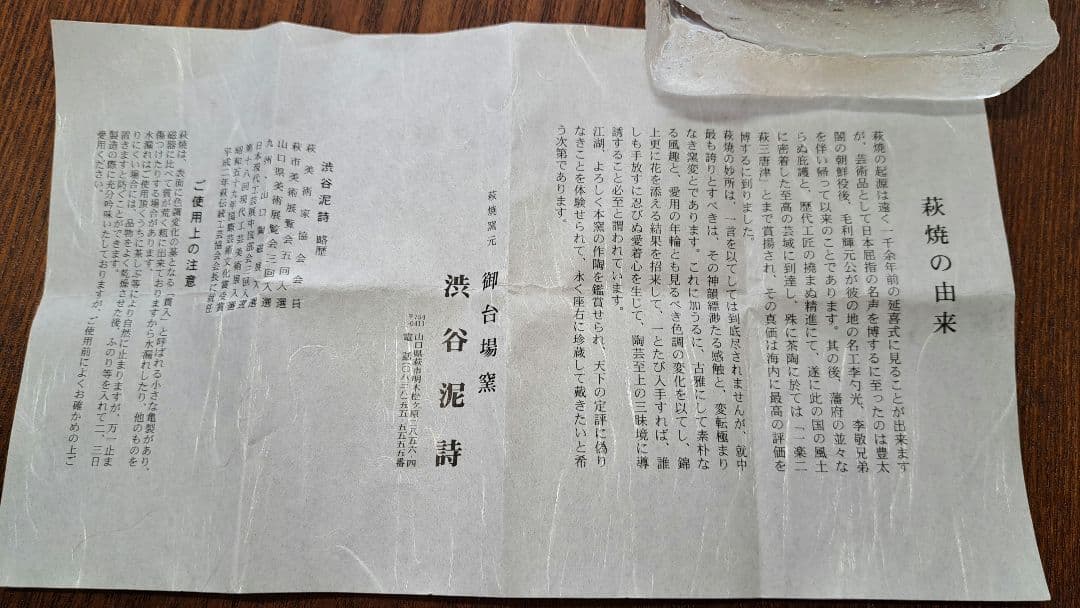 萩焼の由来
萩焼の起源は遠く一千余年前の延喜式に見ることが出来ます
が、芸術品として日本屈指の名声を博するに至ったのは豊太
閤の朝鮮役後、毛利輝元公が彼の地の名工李勺光、李敬兄弟
を伴い帰って以来のことであります。其の後、藩府の並々な
らぬ庇護と、歴代工匠の撓まぬ精進にて、遂に此の国の風土
に密着した至高の芸域に到達し、殊に茶陶に於ては「一楽二
萩三唐津」とまで賞揚され、その真価は海内に最高の評価を
博するに到りました。
萩焼の妙所は、一言を以てしては到底尽されませんが、就中
最も誇りとすべきは、その神韻縹渺たる感触と、変転極まり
なき窯変とであります。これに加うるに、古雅にして素朴な
る風趣と、愛用の年輪とも見るべき色調の変化を以てし、錦
上更に花を添える結果を招来して、一とたび入手すれば、誰
しも手放すに忍びぬ愛着心を生じて、陶芸至上の三昧境に導
誘すること必至と謂われています。
江湖、よろしく本窯の作陶を鑑賞せられ、天下の定評に偽り
なきことを体験せられて、永く座右に珍蔵して戴きたいと希
う次第であります。
萩焼窯元
御台場窯
渋谷泥詩
〒758-0411
山口県萩市明木松ケ原二八五六-四
渋谷泥詩 略歴
萩美術家協会会員
萩市美術展覧会五回入選
山口県美術展覧会三回入選
九州、山口陶磁展入選
日本現代工芸展中国部会三回入選
第十八回現代工芸美術展入選
昭和五十九年国際芸術文化賞受賞
平成二年萩伝統工芸協会会長に就任
ご使用上の注意
萩焼は、表面に色調変化の基となる「貫入」と呼ばれる小さな亀裂があり、
磁器に比べて質が荒く粗に出来ておりますから水漏れしたり、他のものを
傷つけたりする場合があります。
水漏れはご使用頂くうちに茶しぶ等により自然に止まりますが、万一止ま
りにくい場合には、品物をよく乾燥させた後、ふのり等を入れて二、三日
置きますと防ぐことができます。
製造の際に充分吟味いたしておりますが、ご使用前によくお確かめの上ご
愛用ください。